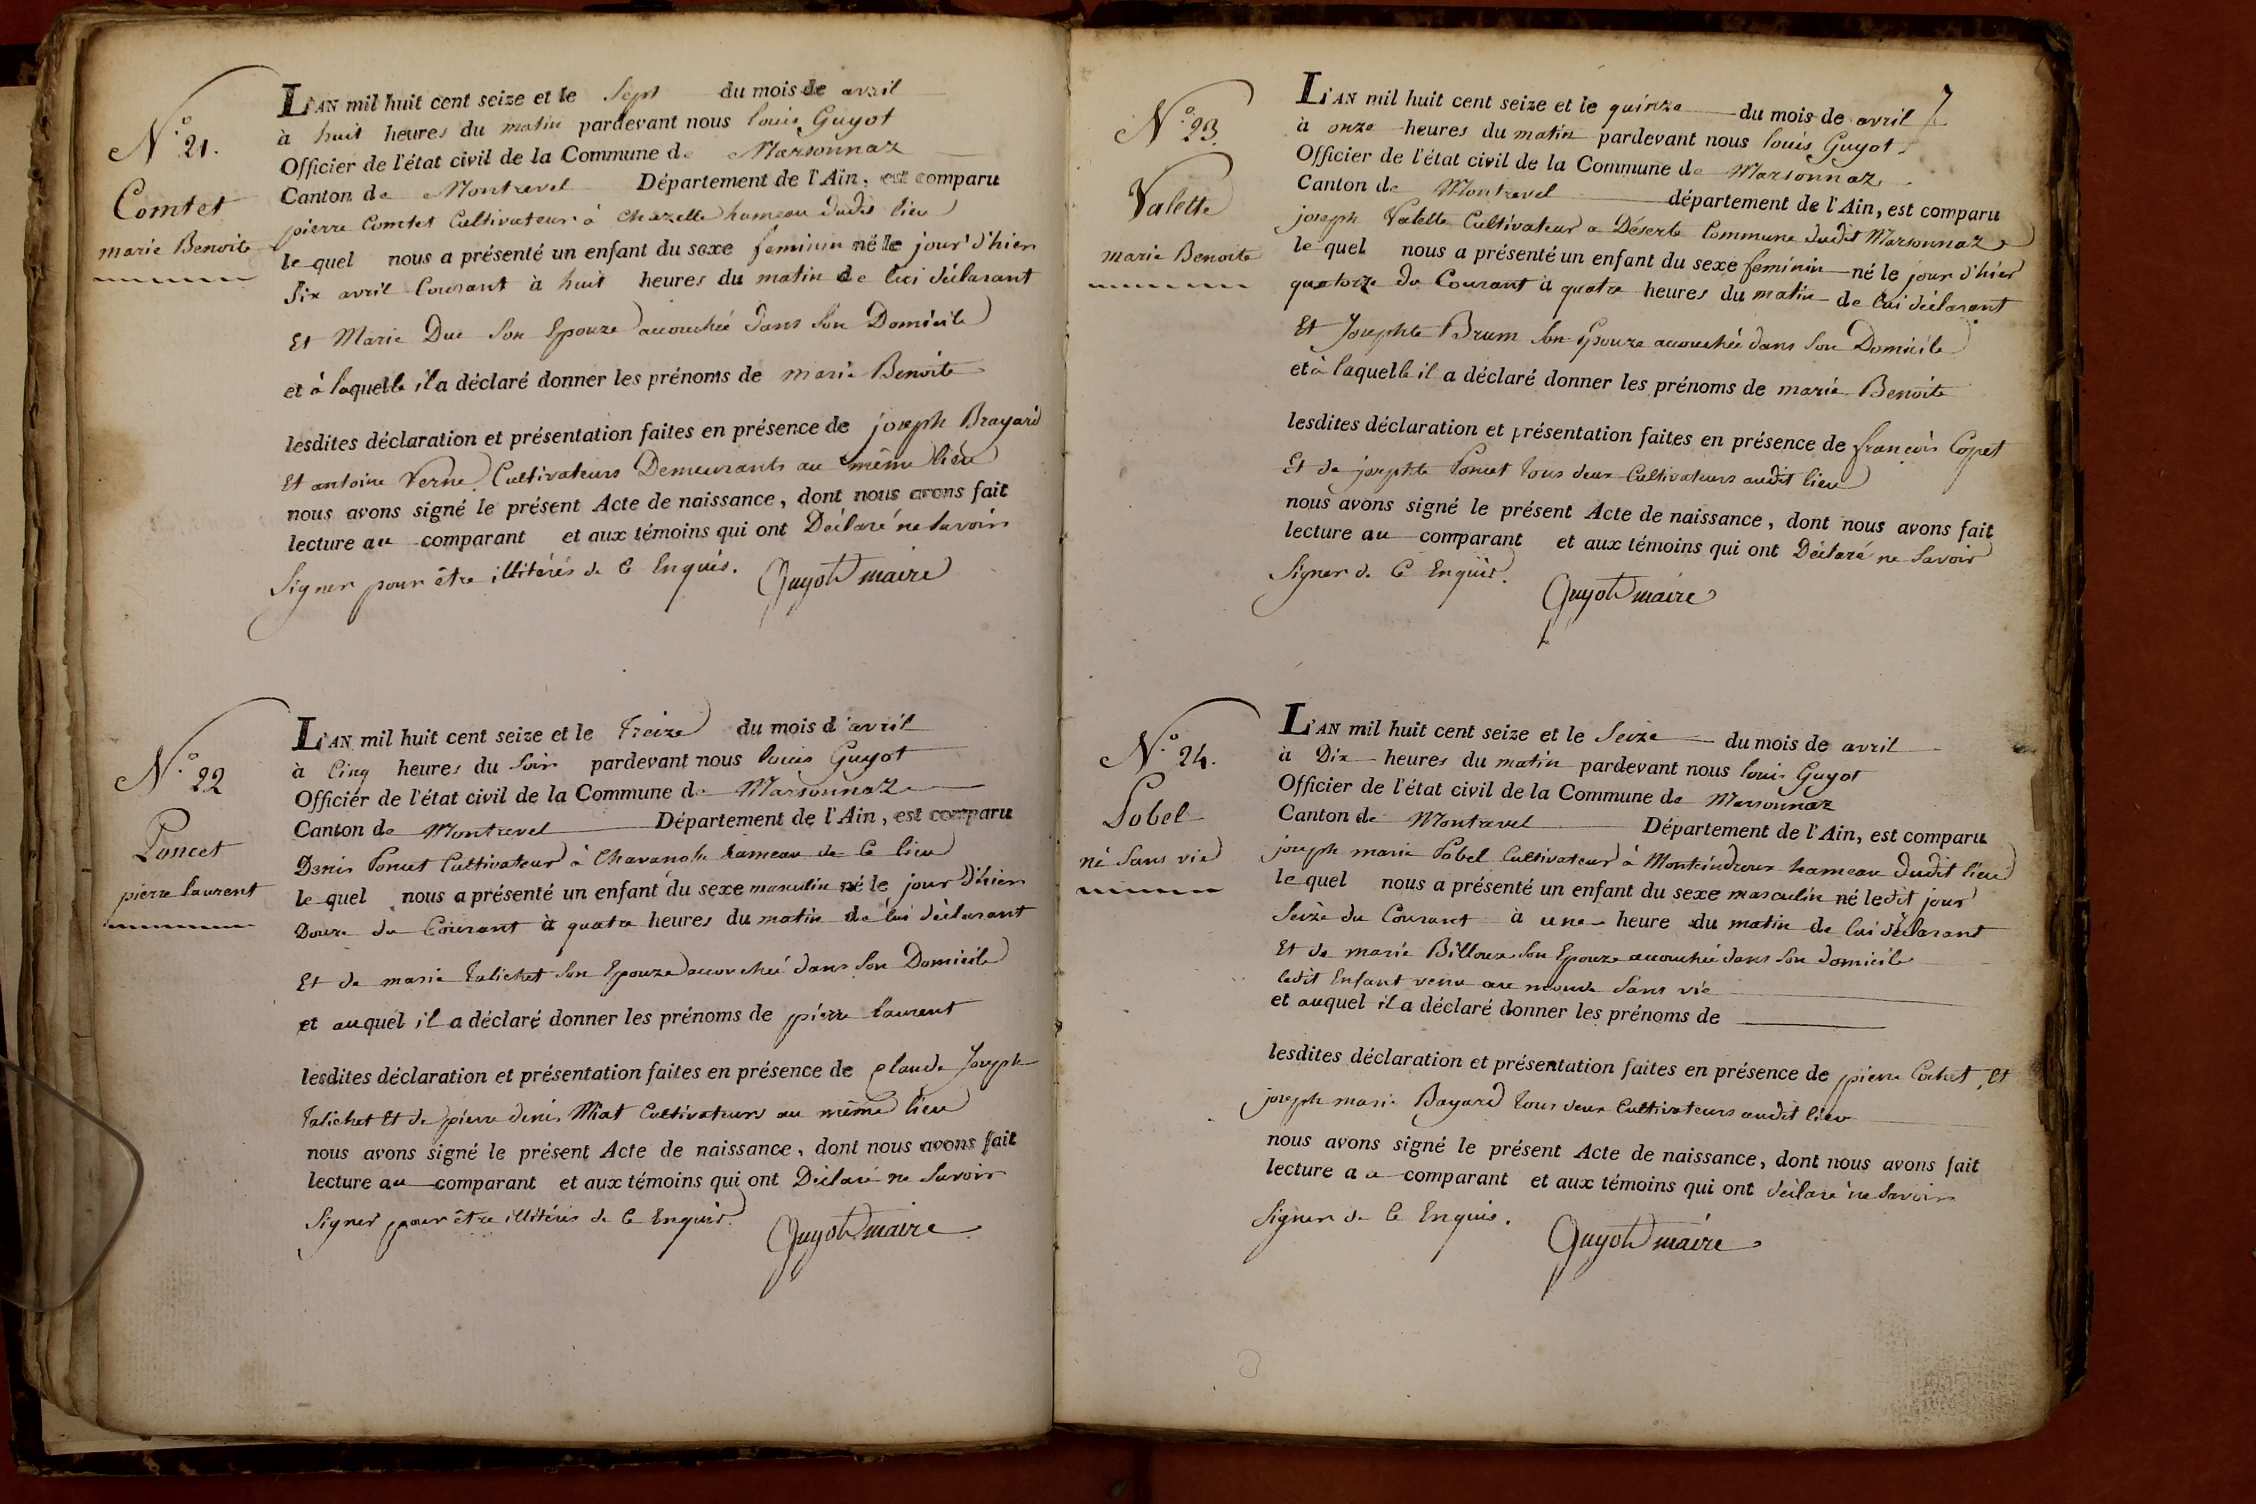 N.° 21.
Comtet
marie Benoite
L'AN mil huit cent seize et le Sept du mois de avril
à huit heures du matin pardevant nous louis Guyot
Officier de l'état civil de la Commune de Marsonnaz
Canton de Montrevel Département de l'Ain, est comparu
pierre Comtet Cultivateur à Chazelle hameau dudit lieu
le quel nous a présenté un enfant du sexe feminin né le jour d'hier
Six avril Courant à huit heures du matin de lui déclarant
Et Marie Duc Son Epouze accouchée dans Son Domicile
et à laquelle il a déclaré donner les prénoms de marie Benoite
lesdites déclaration et présentation faites en présence de joseph Brayard
Et antoine Verne Cultivateurs Demeurants au même lieu
nous avons signé le présent Acte de naissance, dont nous avons fait
lecture au comparant et aux témoins qui ont Déclaré ne Savoir
Signer pour être illitérés de Ce Enquis. Guyot maire
N.° 22
Poncet
pierre laurent
L'AN mil huit cent seize et le Treize du mois d'avril
à Cinq heures du Soir pardevant nous louis Guyot
Officier de l'état civil de la Commune de Marsonnaz
Canton de Montrevel Département de l'Ain, est comparu
Denis Poncet Cultivateur à hameau de Ce lieu
le quel nous a présenté un enfant du sexe masculin né le jour D'hier
Douze du Courant à quatre heures du matin de lui déclarant
Et de marie Talichet Son Epouze accouchée dans Son Domicile
et auquel il a déclaré donner les prénoms de pierre laurent
lesdites déclaration et présentation faites en présence de Claude Joseph
Talichet Et de pierre denis Miat Cultivateurs au même lieu
nous avons signé le présent Acte de naissance, dont nous avons fait
lecture au comparant et aux témoins qui ont Déclaré ne Savoir
Signer pour être illitérés de Ce Enquis. Guyot maire
7
N.° 23.
Valette
marie Benoite
L'AN mil huit cent seize et le quinze du mois de avril
à onze heures du matin pardevant nous louis Guyot
Officier de l'état civil de la Commune de Marsonnaz
Canton de Montrevel département de l'Ain, est comparu
joseph Valette Cultivateur a Déserte Commune dudit Marsonnaz
le quel nous a présenté un enfant du sexe feminin né le jour d'hier
quatorze du Courant à quatre heures du matin de lui déclarant
Et Josephte Brum Son Epouze accouchée dans Son Domicile
et à laquelle il a déclaré donner les prénoms de marie Benoite
lesdites déclaration et présentation faites en présence de françois Copet
Et de josephte Poncet tous deux Cultivateurs audit lieu
nous avons signé le présent Acte de naissance, dont nous avons fait
lecture au comparant et aux témoins qui ont Déclaré ne Savoir
Signer de Ce Enquis. Guyot maire
N.° 24.
Pobel
né Sans vie
L'AN mil huit cent seize et le Seize du mois de avril
à Dix heures du matin pardevant nous louis Guyot
Officier de l'état civil de la Commune de Marsonnaz
Canton de Montrevel Département de l'Ain, est comparu
joseph marie Pobel Cultivateur à hameau dudit lieu
le quel nous a présenté un enfant du sexe masculin né ledit jour
Seize du Courant à une heure du matin de lui déclarant
Et de marie Billoux Son Epouze accouchée dans Son domicile
ledit Enfant venu au monde Sans vie
et auquel il a déclaré donner les prénoms de
lesdites déclaration et présentation faites en présence de pierre Cochet, Et
joseph marie Bayard tous deux Cultivateurs audit lieu
nous avons signé le présent Acte de naissance, dont nous avons fait
lecture au comparant et aux témoins qui ont déclaré ne Savoir
Signer de Ce Enquis. Guyot maire